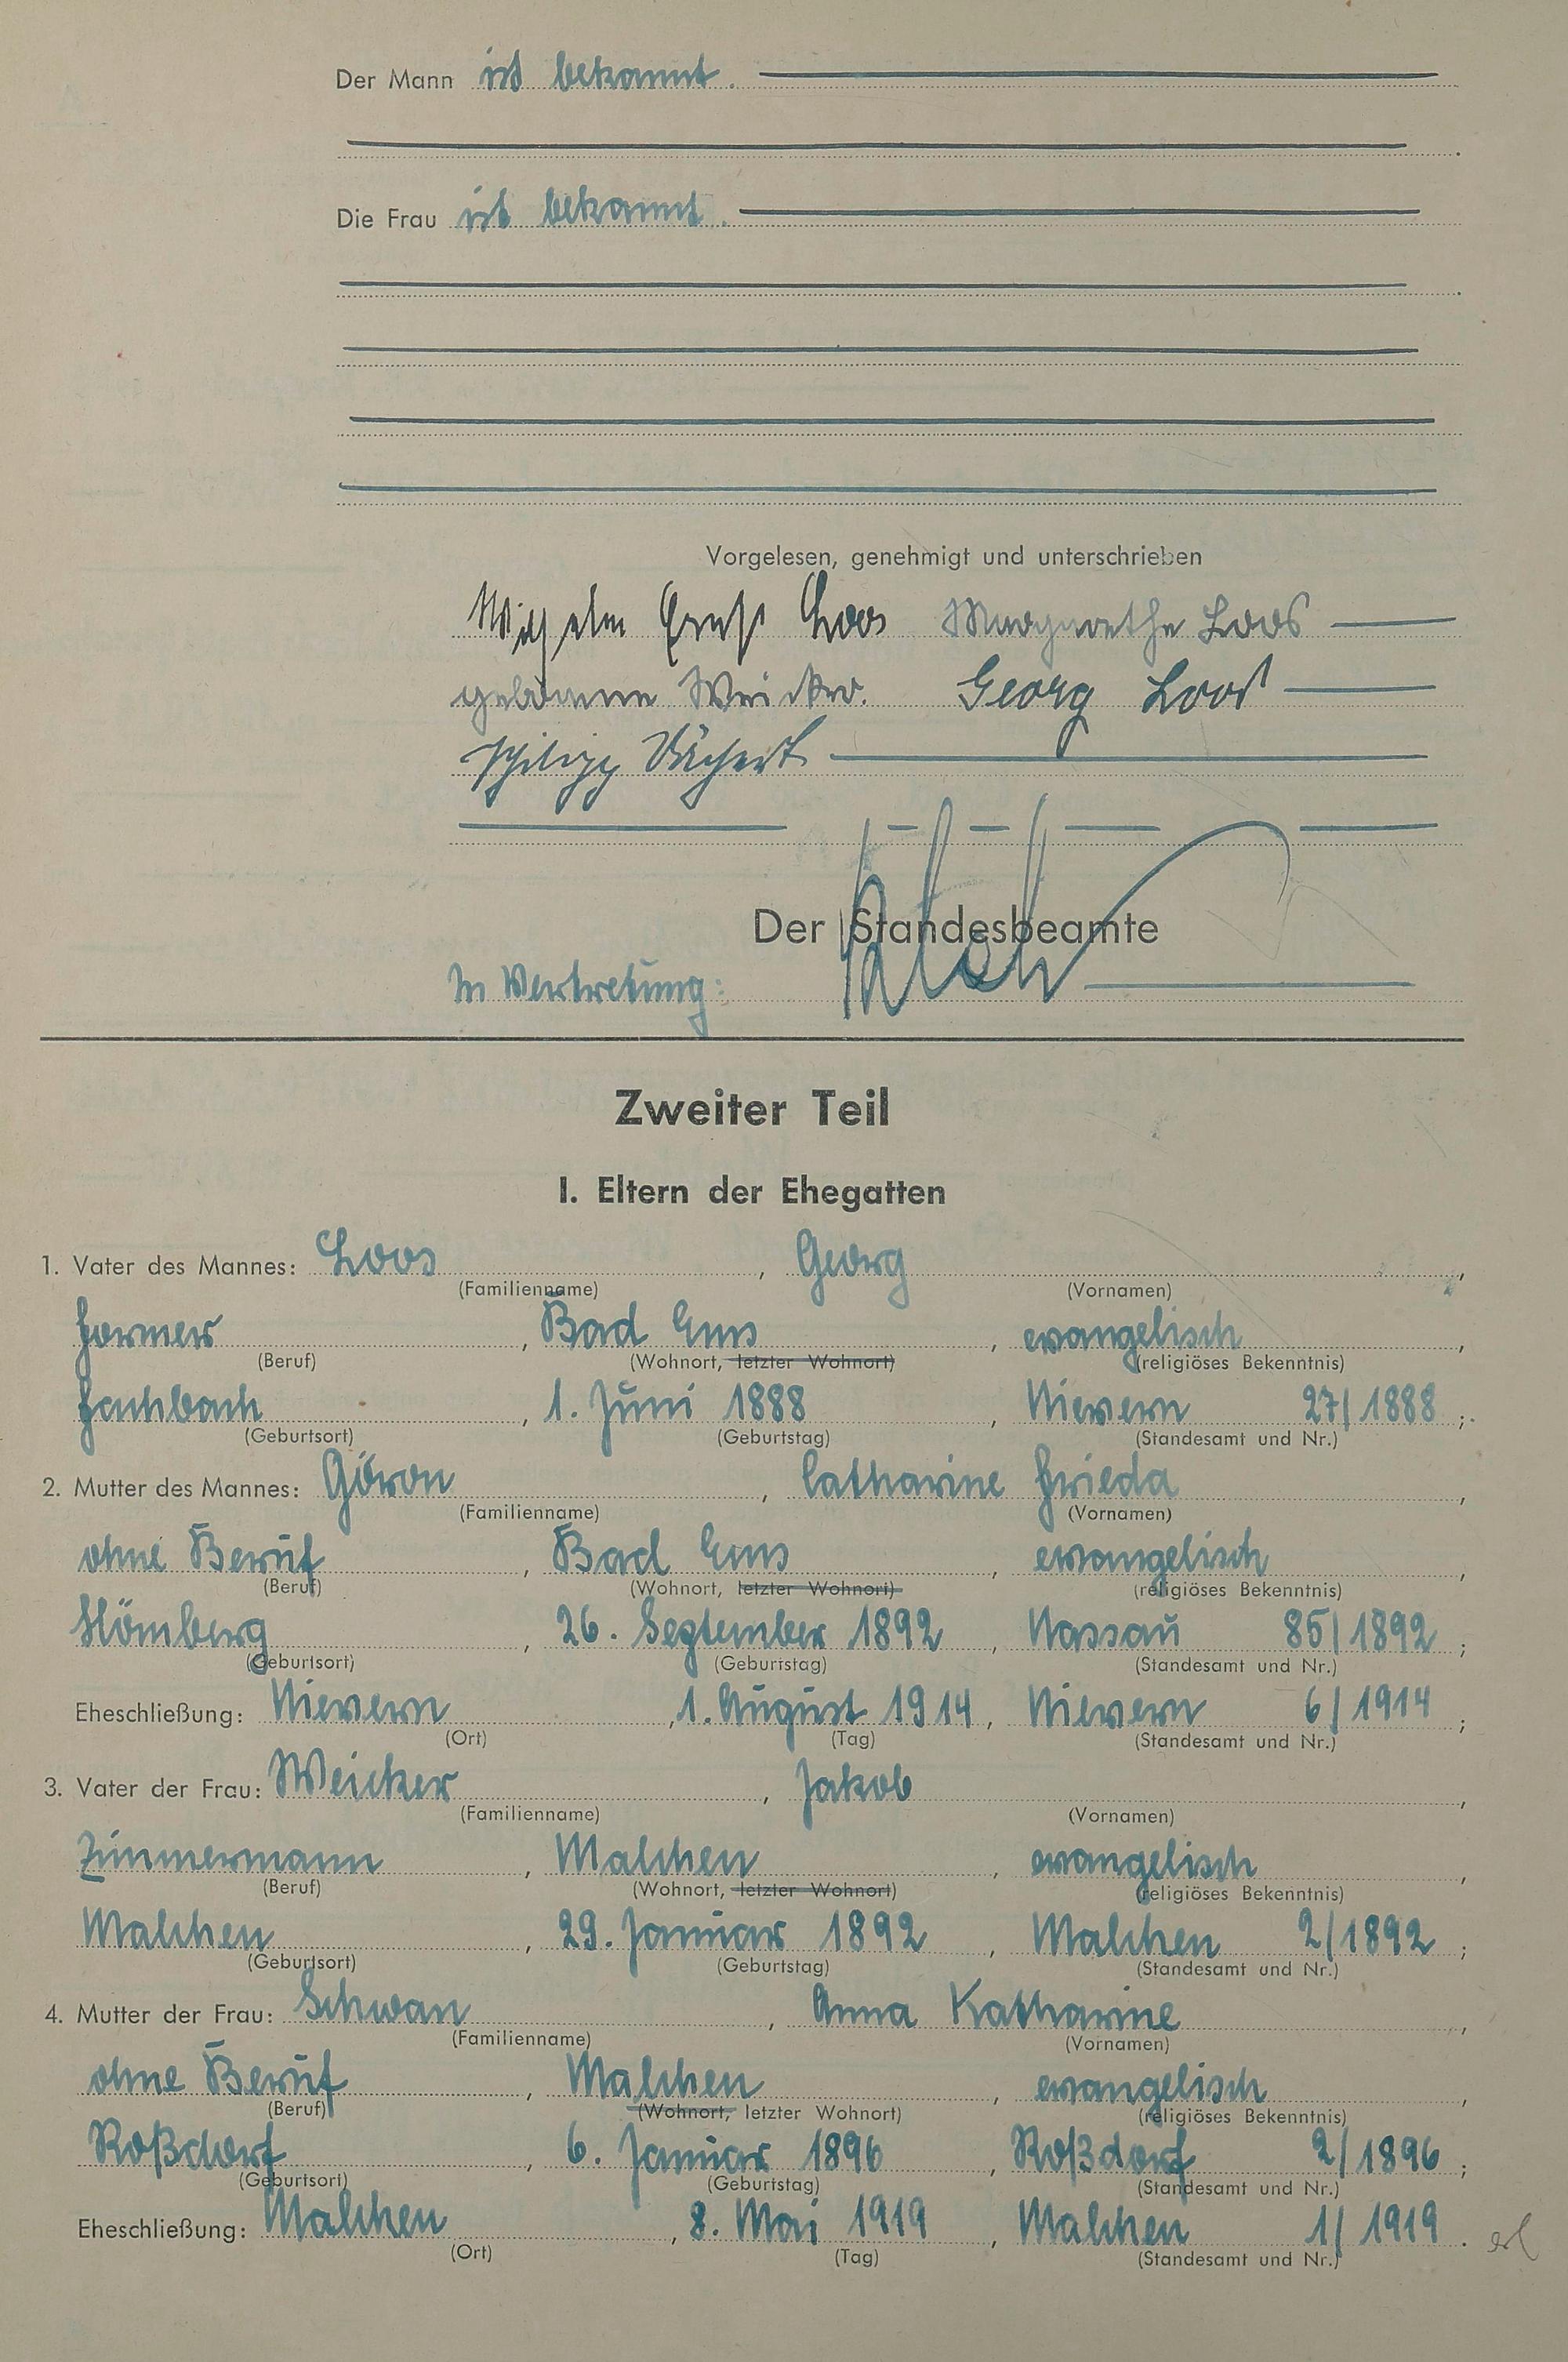 Der Mann ist bekannt.
Die Frau ist bekannt.
Vorgelesen, genehmigt und unterschrieben
Wilhelm Ernst Loos Margarethe Loos
geborene Weicker. Georg Loos
Philipp
Der Standesbeamte
In Vertretung:
Zweiter Teil
I. Eltern der Ehegatten
1. Vater des Mannes: Loos, Georg,
(Familienname) (Vornamen)
Former, Bad Ems, evangelisch,
(Beruf) (Wohnort, letzter Wohnort) (religiöses Bekenntnis)
Fachbach, 1. Juni 1888, Nievern 27/1888;
(Geburtsort) (Geburtstag) (Standesamt und Nr.)
2. Mutter des Mannes: Göron, Catharine Frieda,
(Familienname) (Vornamen)
ohne Beruf, Bad Ems, evangelisch,
(Beruf) (Wohnort, letzter Wohnort) (religiöses Bekenntnis)
Hömberg, 26. September 1892, Nassau 85/1892;
(Geburtsort) (Geburtstag) (Standesamt und Nr.)
Eheschließung: Nievern, 1. August 1914, Nievern 6/1914;
(Ort) (Tag) (Standesamt und Nr.)
3. Vater der Frau: Weicker, Jakob,
(Familienname) (Vornamen)
Zimmermann, Malchen, evangelisch,
(Beruf) (Wohnort, letzter Wohnort) (religiöses Bekenntnis)
Malchen, 29. Januar 1892, Malchen 2/1892;
(Geburtsort) (Geburtstag) (Standesamt und Nr.)
4. Mutter der Frau: Schwan, Anna Katharine,
(Familienname) (Vornamen)
ohne Beruf, Malchen, evangelisch,
(Beruf) (Wohnort, letzter Wohnort) (religiöses Bekenntnis)
Roßdorf, 6. Januar 1896, Roßdorf 2/1896;
(Geburtsort) (Geburtstag) (Standesamt und Nr.)
Eheschließung: Malchen, 8. Mai 1919, Malchen 1/1919. erl
(Ort) (Tag) (Standesamt und Nr.)